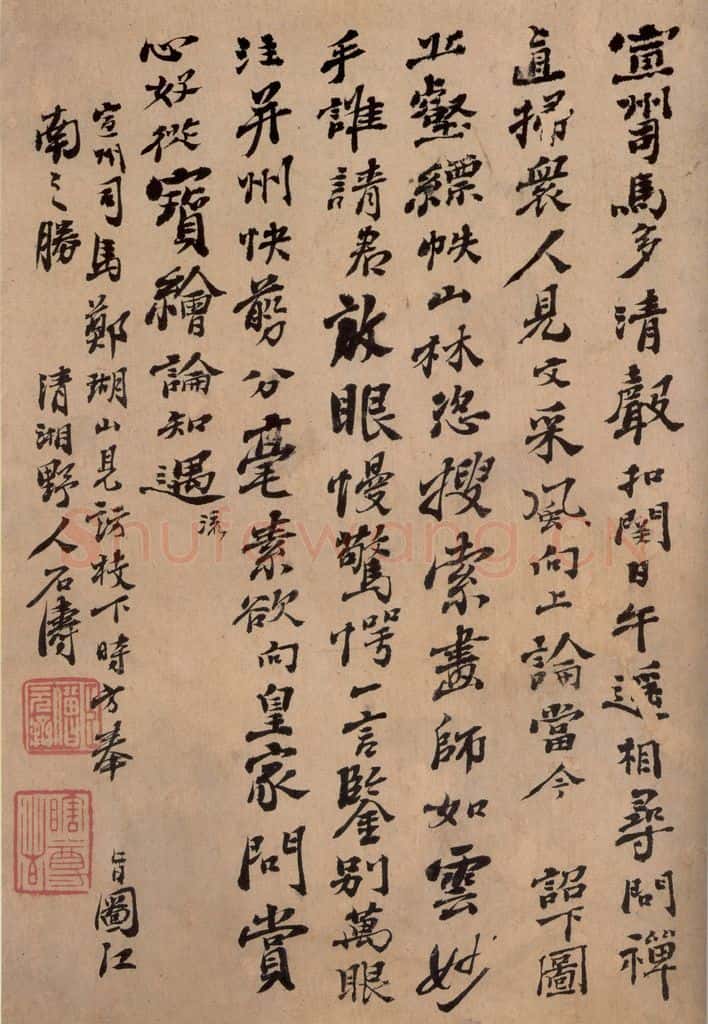 宣州司馬多清聲扣關日午遙相尋問禪
直掃衆人見文采風向上論當今 詔下圖
丘壑縹帙山林恣搜索畫師如雲妙
手誰請君放眼慢驚愕一言鑒別萬眼
注并州快剪分毫素欲向皇家問賞
心好從寶繪論知遇 流
宣州司馬鄭瑚山見訪枝下時方奉 旨圖江
南之勝 清湘野人石濤
瞎尊者
Shufawang.CN